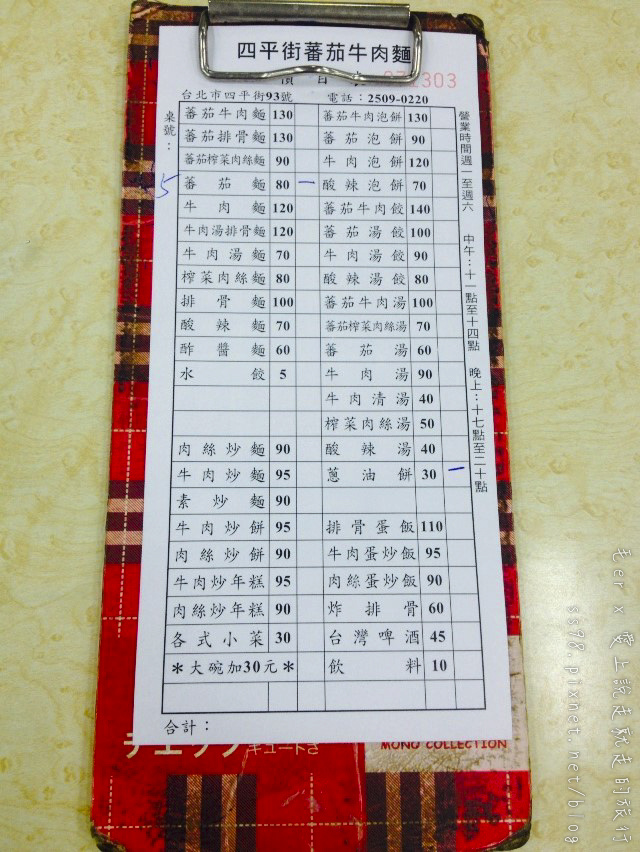 四平街蕃茄牛肉麵
價目表 071303
台北市四平街93號 電話：2509-0220
桌號：
蕃茄牛肉麵 130 蕃茄牛肉泡餅 130
蕃茄排骨麵 130 蕃茄泡餅 90
蕃茄榨菜肉絲麵 90 牛肉泡餅 120
5
蕃茄麵 80 酸辣泡餅 70
牛肉麵 120 蕃茄牛肉餃 140
牛肉湯排骨麵 120 蕃茄湯餃 100
牛肉湯麵 70 牛肉湯餃 90
榨菜肉絲麵 80 酸辣湯餃 80
排骨麵 100 蕃茄牛肉湯 100
酸辣麵 70 蕃茄榨菜肉絲湯 70
酢醬麵 60 蕃茄湯 60
水餃 5 牛肉湯 90
牛肉清湯 40
榨菜肉絲湯 50
肉絲炒麵 90 酸辣湯 40
牛肉炒麵 95 蔥油餅 30
素炒麵 90
牛肉炒餅 95 排骨蛋飯 110
肉絲炒餅 90 牛肉蛋炒飯 95
牛肉炒年糕 95 肉絲蛋炒飯 90
肉絲炒年糕 90 炸排骨 60
各式小菜 30 台灣啤酒 45
＊大碗加30元＊ 飲料 10
合計：
營業時間週一至週六 中午：十一點至十四點 晚上：十七點至二十點
チェック キュートさ
MONO COLLECTION
毛er x 愛上說走就走的旅行
ss98.pixnet.net/blog